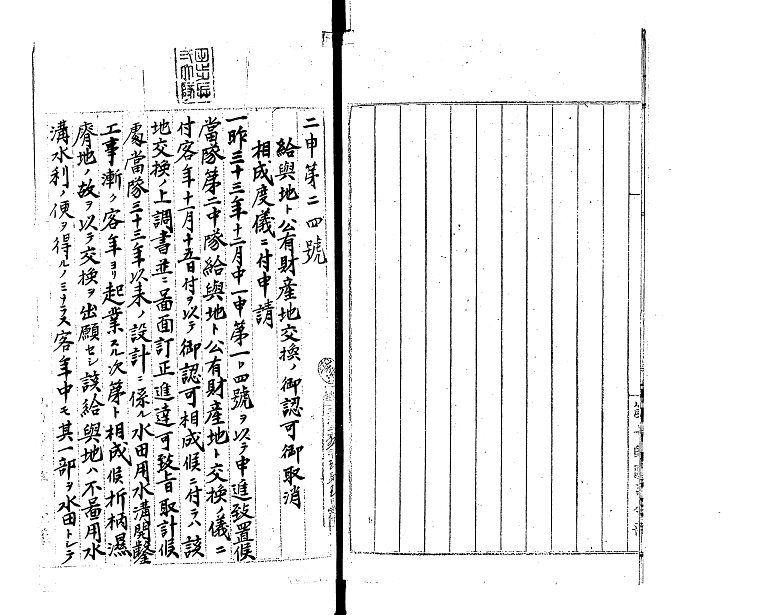 二申第二四號
給與地ト公有財産地交換ノ御認可御取消
相成度儀ニ付申請
一昨三十三年十二月中一申第一〇四號ヲ以テ申進致置候
當隊第二中隊給與地ト公有財産地ト交換ノ儀ニ
付客年十一月十五日付ヲ以テ御認可相成候ニ付テハ該
地交換ノ上調書並ニ圖面訂正進達可致旨取計候
處當隊三十三年以来ノ設計ニ係ル水田用水溝開鑿
工事漸ク客年ヨリ起業スル次第ト相成候折柄濕
瘠地ノ故ヲ以テ交換ヲ出願セシ該給與地ハ不圖用水
溝水利ノ便ヲ得ルノミナラス客年中モ其一部ヲ水田トシテ